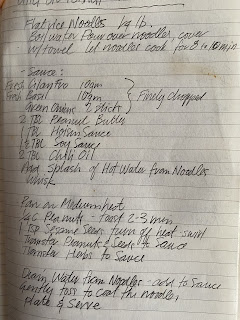 Flat rice Noodles 1/4 lb.
Boil water Pour over noodles, cover
w/towel let noodles cook for 8 to 10 min
- Sauce:
Fresh Cilantro 10gm
Fresh Basil 10gm } Finely chopped
Green Onions 2 sticks
2 TBL Peanut Butter
1 TBL Hoisin Sauce
1/2 TBL Soy Sauce
2 TBL Chili Oil
Add Splash of Hot Water from Noodles
Whisk
Pan on Medium heat
1/4 C Peanuts - toast 2-3 min
1 TSP Sesame Seeds turn off heat swirl
Transfer Peanuts & Seeds to Sauce
Transfer Herbs to Sauce
Drain Water from Noodles - add to Sauce
Gently toss to Coat the noodles,
plate & Serve